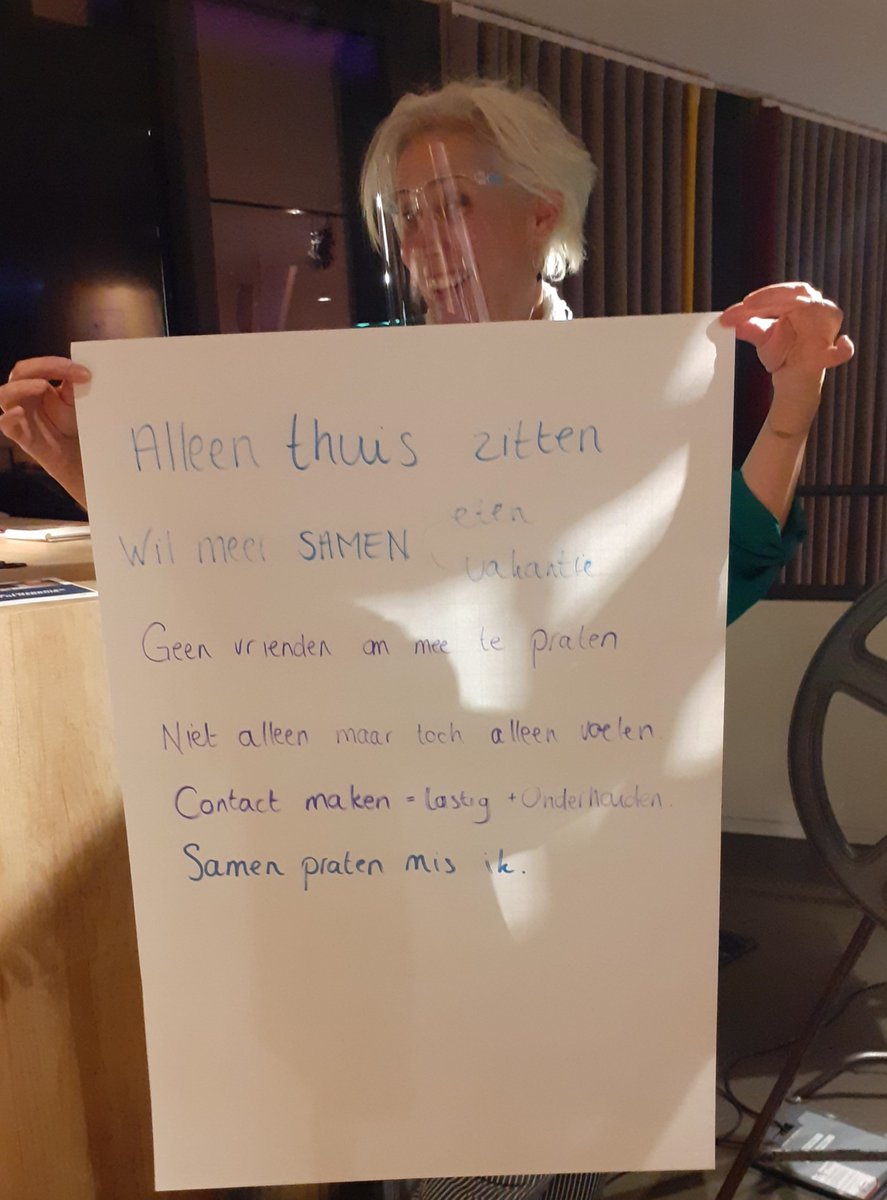 Alleen thuis zitten
Wil meer SAMEN eten
vakantie
Geen vrienden om mee te praten
Niet alleen maar toch alleen voelen.
Contact maken = lastig + Onderhouden.
Samen praten mis ik.